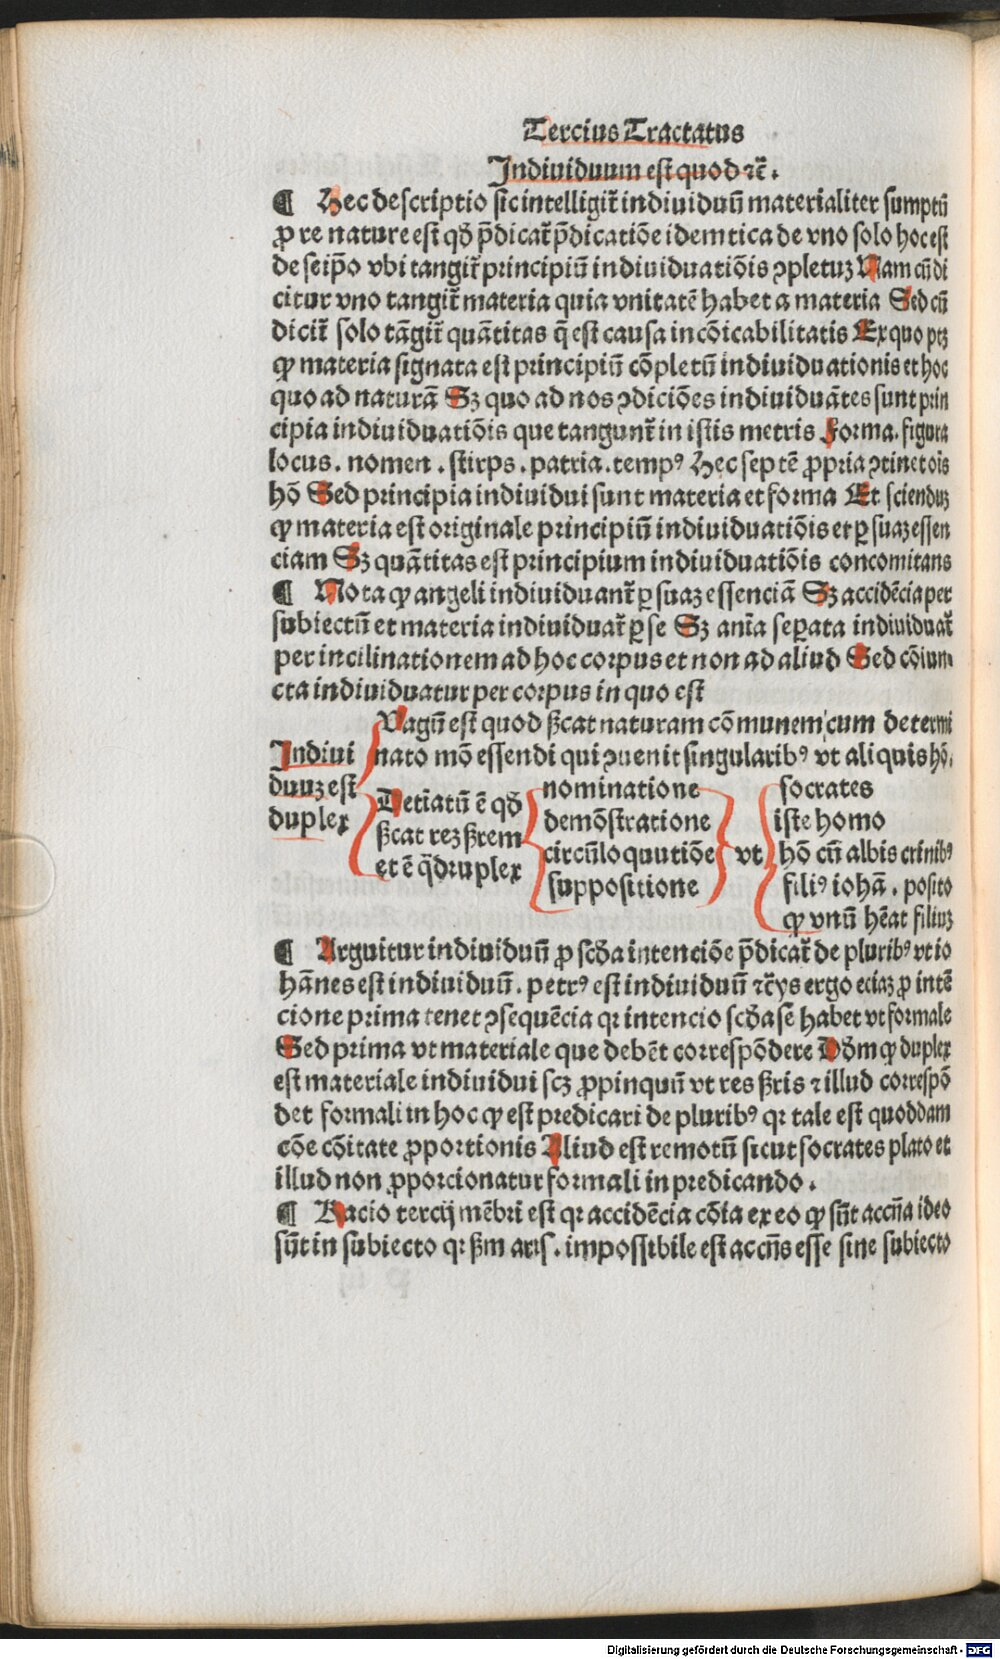 Tercius Tractatus
Indiuiduum est quod ⁊c̃.
¶ Hec descriptio sic intelligit᷑ indiuiduū materialiter sumptū
ꝓ re nature est qđ p̄dicat᷑ p̄dicatiōe idemtica de vno solo hoc est
de seip̄o vbi tangit᷑ principiū indiuiduatiōis ꝯpletuꝫ Nam cū di
citur vno tangit᷑ materia quia vnitatē habet a materia Sed cū
dicit᷑ solo tāgit᷑ quātitas q̄ est causa incōicabilitatis Ex quo ptꝫ
ꝙ materia signata est principiū cōpletū indiuiduationis et hoc
quo ad naturā Sꝫ quo ad nos ꝯdiciōes indiuiduātes sunt prin
cipia indiuiduatiōis que tangunt᷑ in istis metris Forma. figura
locus. nomen. stirps. patria. tempꝰ Hec septē ꝓpria ꝯtinet ois
hō Sed principia indiuidui sunt materia et forma Et scienduꝫ
ꝙ materia est originale principiū indiuiduatiōis et ꝑ suaꝫ essen
ciam Sꝫ quātitas est principium indiuiduatiōis concomitans
¶ Nota ꝙ angeli indiuiduant᷑ ꝑ suaꝫ essenciā Sꝫ accidēcia per
subiectū et materia indiuiduat᷑ ꝑ se Sꝫ anīa seꝑata indiuiduat᷑
per incilinationem ad hoc corpus et non ad aliud Sed cōiun
cta indiuiduatur per corpus in quo est
Vagū est quod ẞcat naturam cōmunem cum determi
Indiui nato mō essendi qui ꝯuenit singularibꝰ vt aliquis hō.
duuꝫ est Det̄iatū ē qđ nominatione socrates
duplex ẞcat reꝫ ẞrem demōstratione iste homo
et ē q̄druplex circūloquutiōe vt hō cū albis crinibꝰ
suppositione filiꝰ iohā. posito
ꝙ vnū hēat filiuꝫ
¶ Arguitur indiuiduū ꝓ scđa intenciōe p̄dicat᷑ de pluribꝰ vt io
hānes est indiuiduū. petrꝰ est indiuiduū ⁊c̃ys ergo eciaꝫ ꝓ intē
cione prima tenet ꝯsequēcia qꝛ intencio scđa sē habet vt formale
Sed prima vt materiale que debēt correspōdere Dđm ꝙ duplex
est materiale indiuidui scꝫ ꝓpinquū vt res ẞris ⁊ illud correspō
det formali in hoc ꝙ est predicari de pluribꝰ qꝛ tale est quoddam
cōe cōitate ꝓportionis Aliud est remotū sicut socrates plato et
illud non ꝓporcionatur formali in predicando.
¶ Racio tercij mēbri est qꝛ accidēcia cōia ex eo ꝙ sūt accn̄a ideo
sūt in subiecto qꝛ ẞm aris. impossibile est accn̄s esse sine subiecto
Digitalisierung gefördert durch die Deutsche Forschungsgemeinschaft - DFG